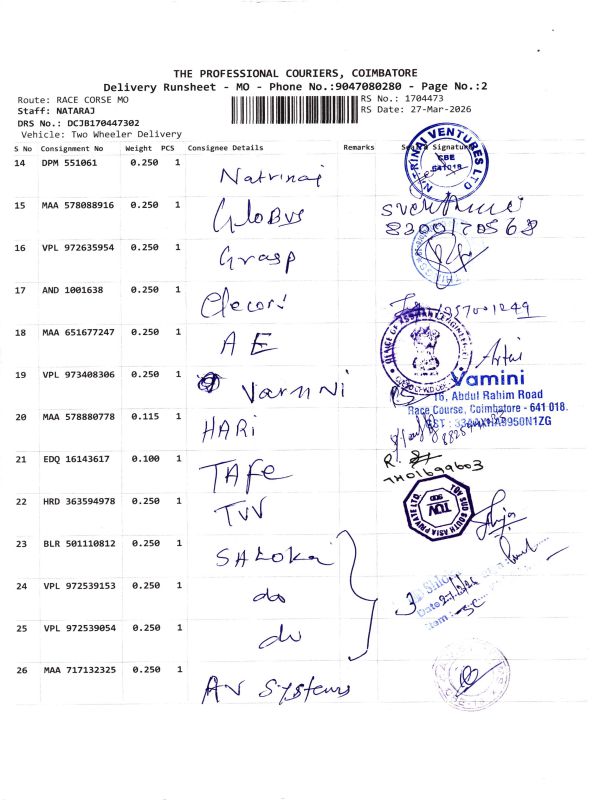 THE PROFESSIONAL COURIERS, COIMBATORE
Delivery Runsheet - MO - Phone No.:9047080280 - Page No.:2
Route: RACE CORSE MO
RS No.: 1704473
Staff: NATARAJ
RS Date: 27-Mar-2026
DRS No.: DCJB170447302
Vehicle: Two Wheeler Delivery
S No Consignment No Weight PCS Consignee Details Remarks Signature
14 DPM 551061 0.250 1
NATRINAI VENTURES LTD CBE 641018
Natrinai
15 MAA 578088916 0.250 1 GloBus
8300170568
16 VPL 972635954 0.250 1 Grasp
17 AND 1001638 0.250 1
18 MAA 651677247 0.250 1 AE
19 VPL 973408306 0.250 1
Vamini
16, Abdul Rahim Road
Race Course, Coimbatore - 641 018.
20 MAA 578880778 0.115 1 HARi
21 EDQ 16143617 0.100 1 TAFe
22 HRD 363594978 0.250 1 TVV
TUV SUD SOUTH ASIA PRIVATE LTD.
23 BLR 501110812 0.250 1 SHLOKA
24 VPL 972539153 0.250 1 do
3
Date
25 VPL 972539054 0.250 1 do
26 MAA 717132325 0.250 1 AV Systems